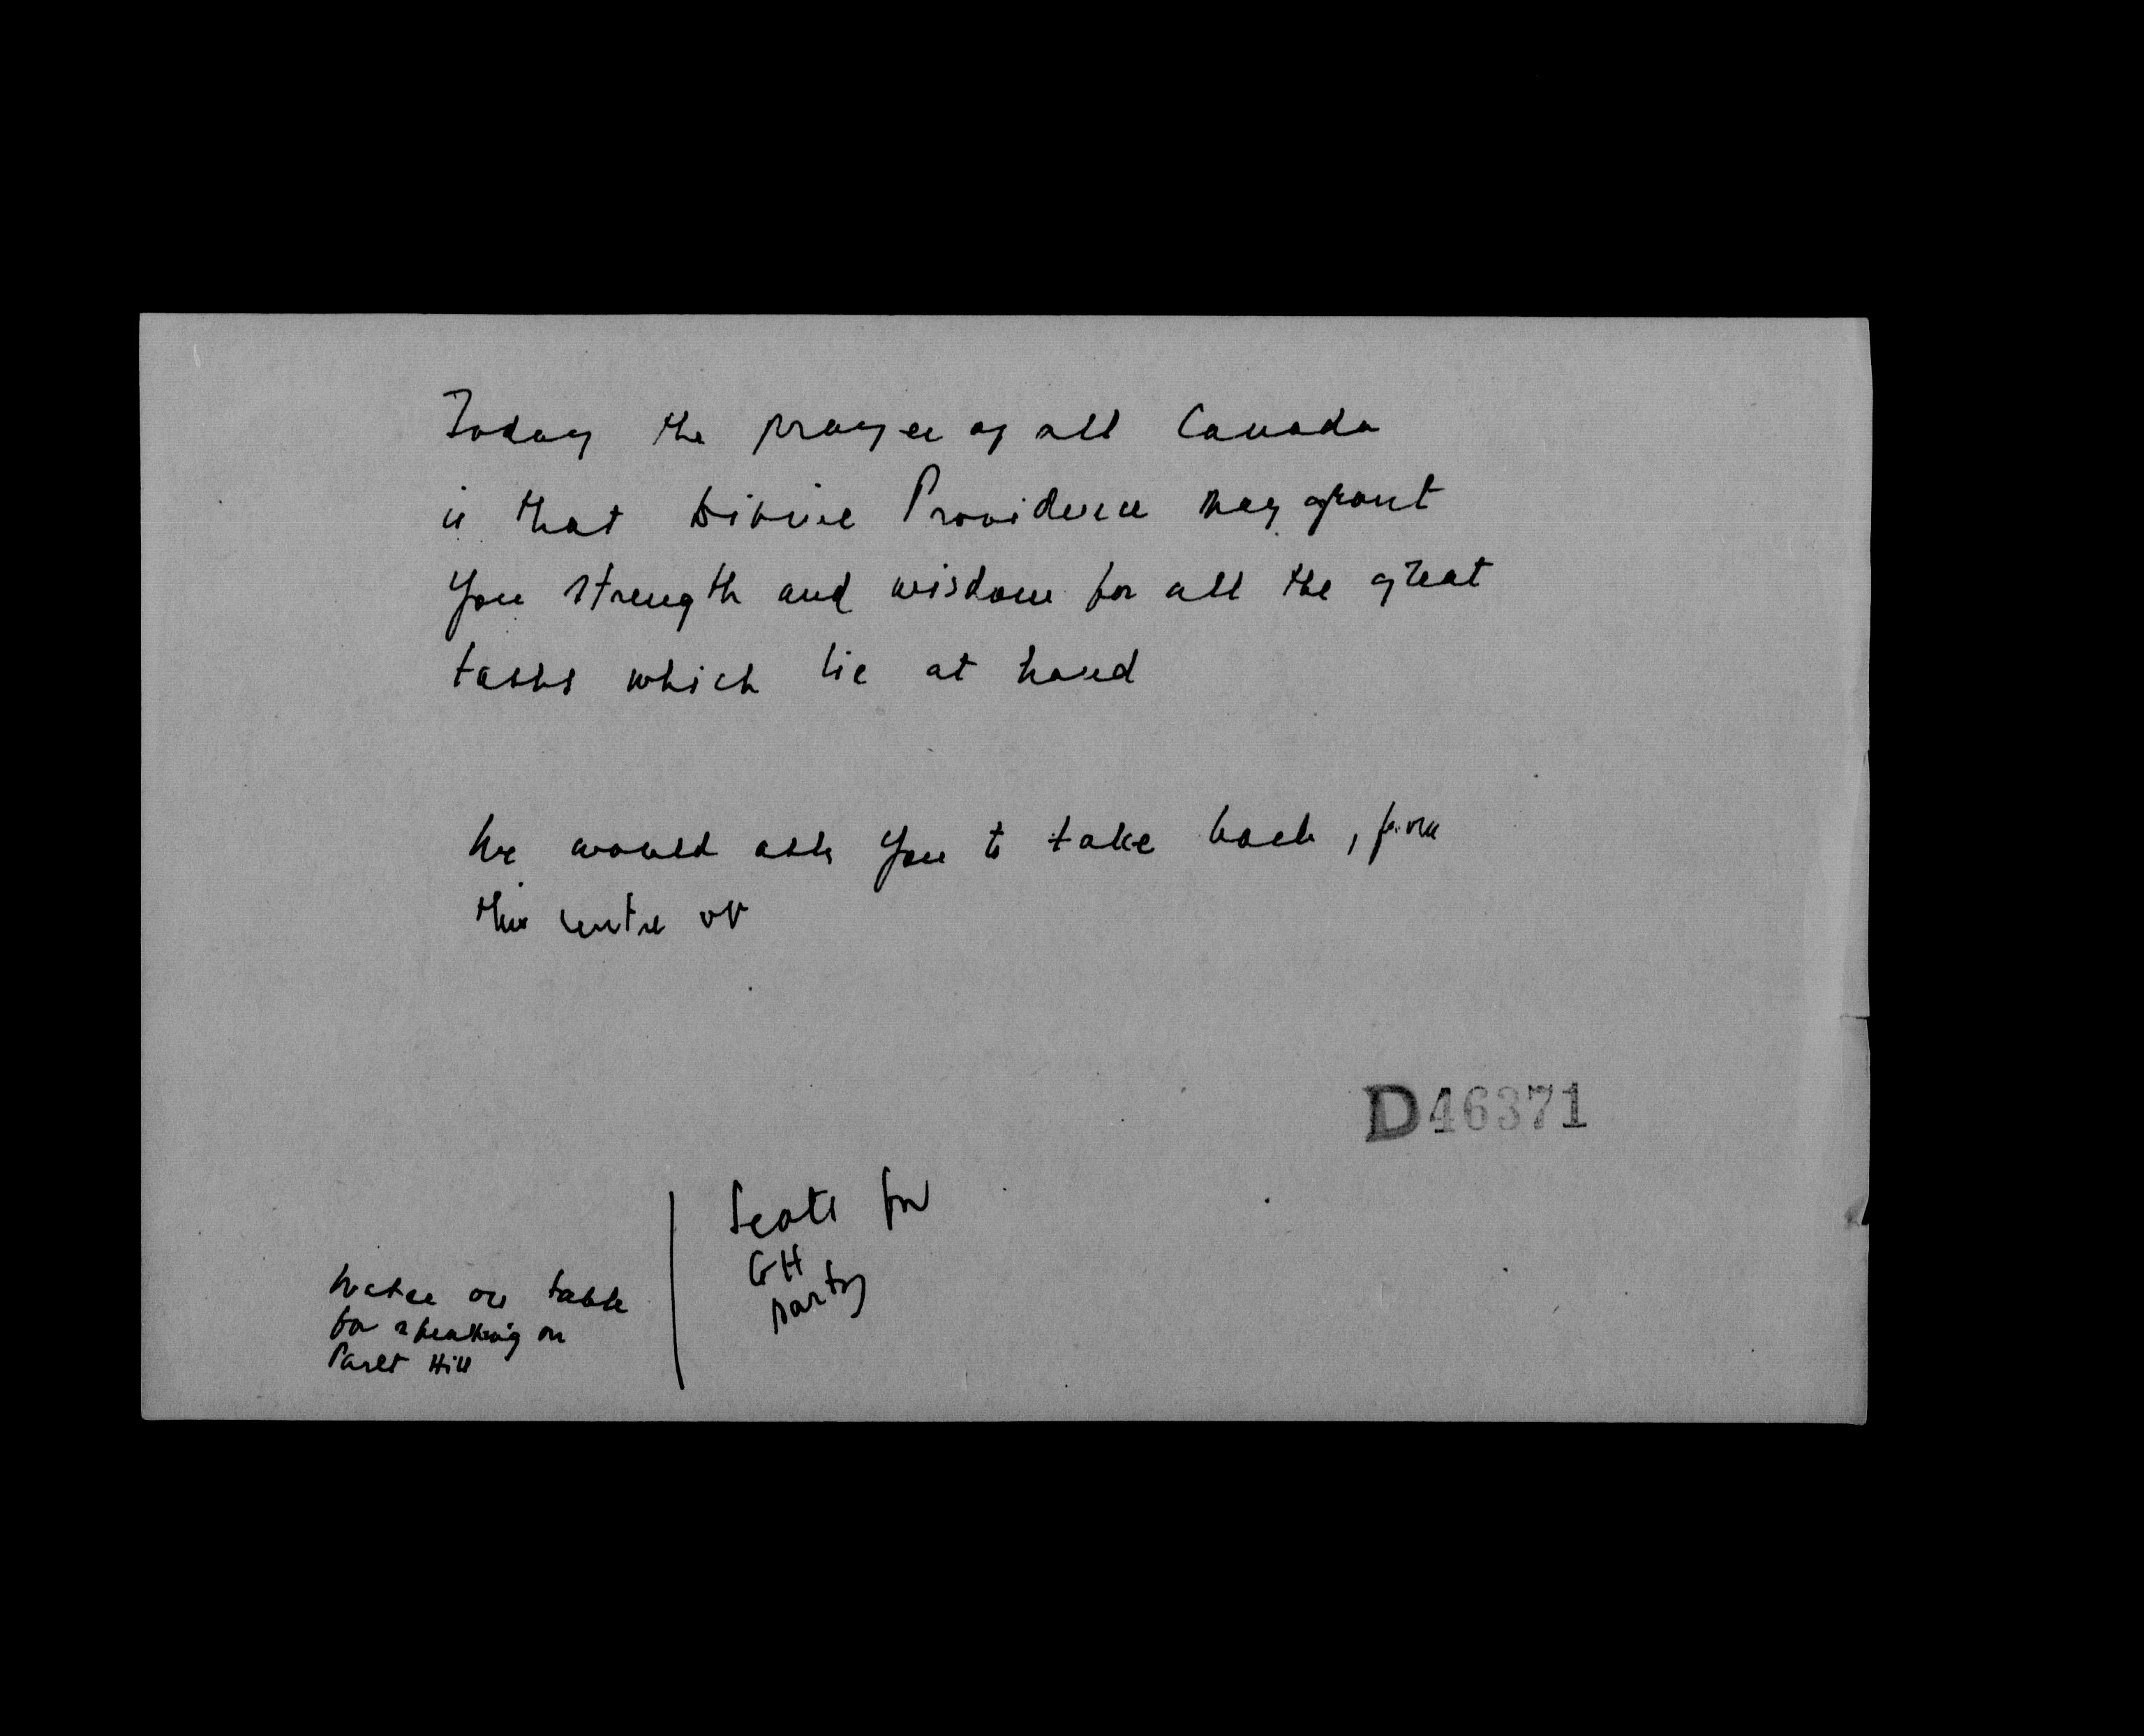 Today the prayer of all Canada
is that Divine Providence may grant
you strength and wisdom for all the great
tasks which lie at hand
We would ask you to take back, from
this centre of
D46371
Seats for
GH
party
Water on table
for speaking on
Parlt Hill